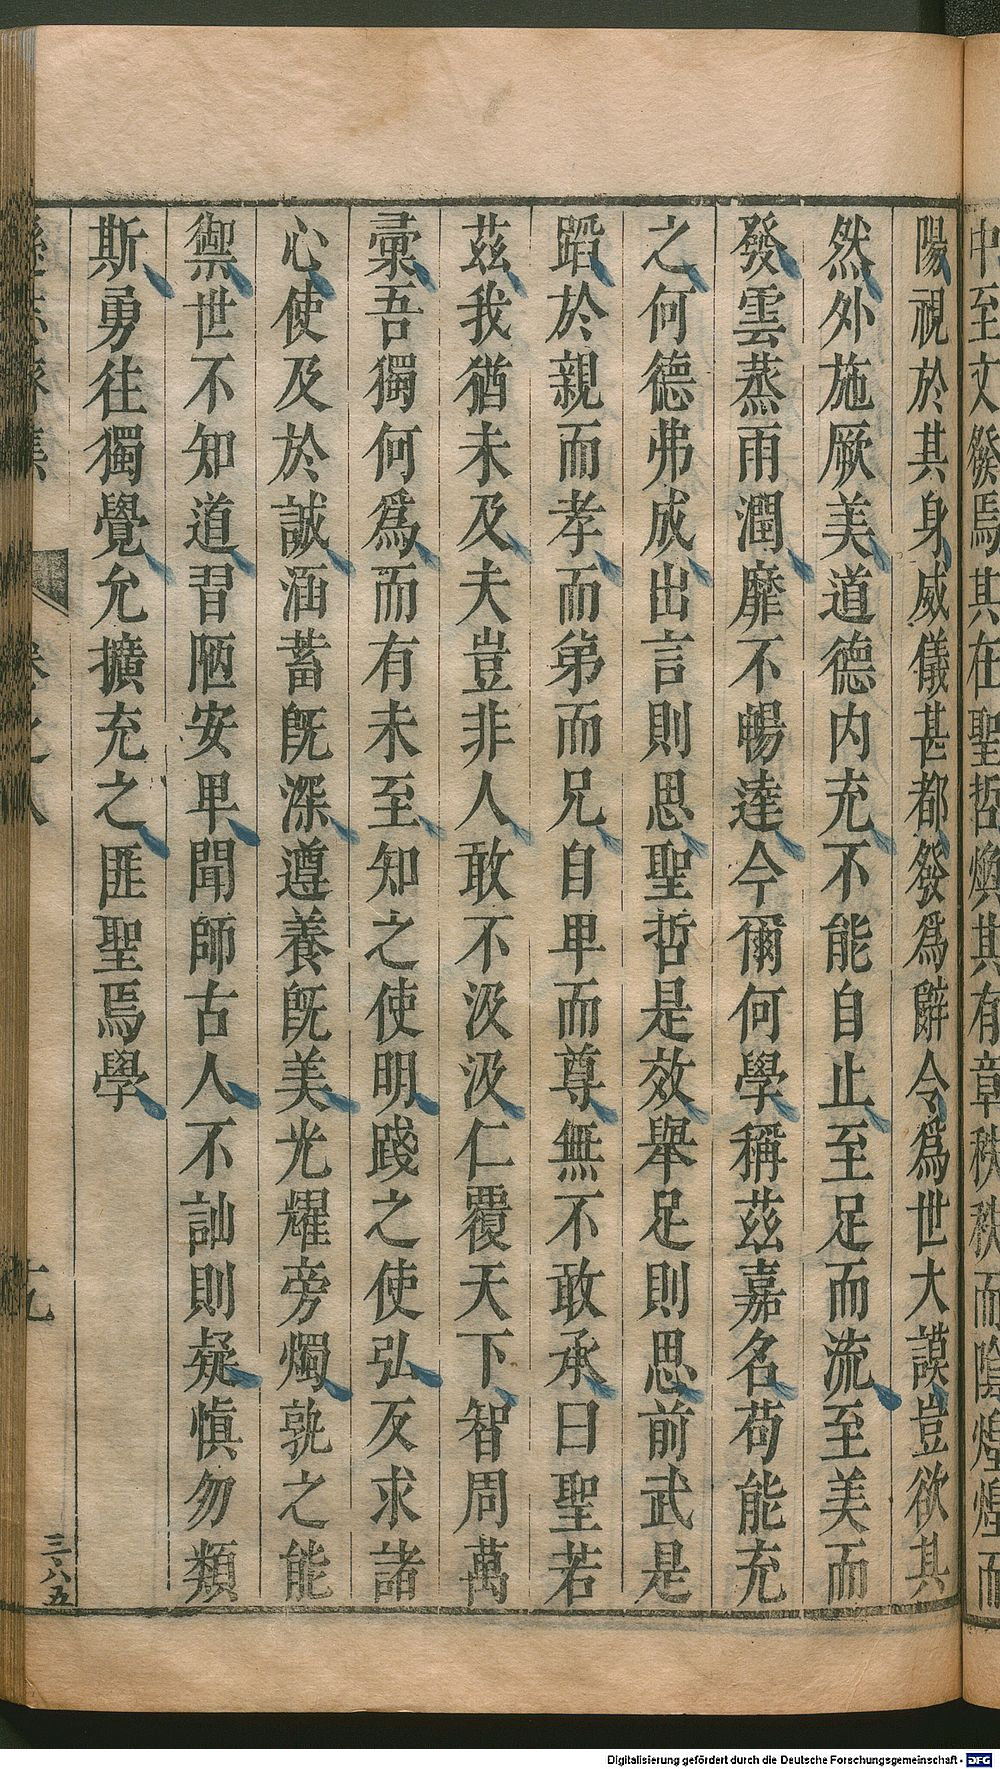 中至文發焉其在聖哲煥其有章秩秩而陰煌煌而
陽視於其身威儀甚都發爲辭令爲世大謨豈欲其
然外施厥美道德内充不能自止至足而流至美而
發雲蒸雨潤靡不暢達今爾何學稱茲嘉名苟能充
之何德弗成出言則思聖哲是效舉足則思前武是
蹈於親而孝而弟而兄自卑而尊無不敢承曰聖若
茲我猶未及夫豈非人敢不汲汲仁覆天下智周萬
彙吾獨何爲而有未至知之使明踐之使弘反求諸
心使及於誠涵蓄既深遵養既美光耀旁燭孰之能
禦世不知道習陋安卑聞師古人不訕則疑慎勿類
斯勇往獨覺允擴充之匪聖焉學
遜志齋集
卷之八
十九
三六五
Digitalisierung gefördert durch die Deutsche Forschungsgemeinschaft - DFG